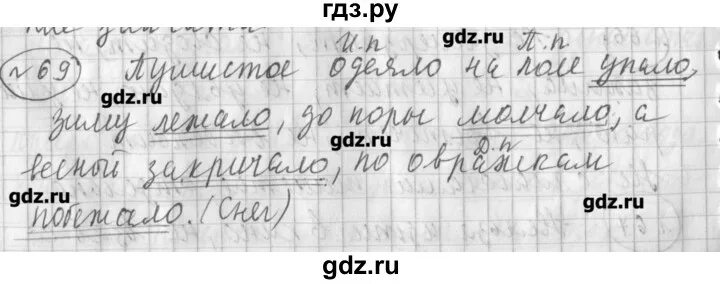 гдз.ру
И.п П.п
№69 Пушистое одеяло на поле упало,
зиму лежало, до поры молчало, а
весной закричало, по овражкам
Д.п
побежало. (Снег)
gdz.ru
gdz.ru
gdz.ru
gdz.ru
gdz.ru
gdz.ru
gdz.ru
gdz.ru